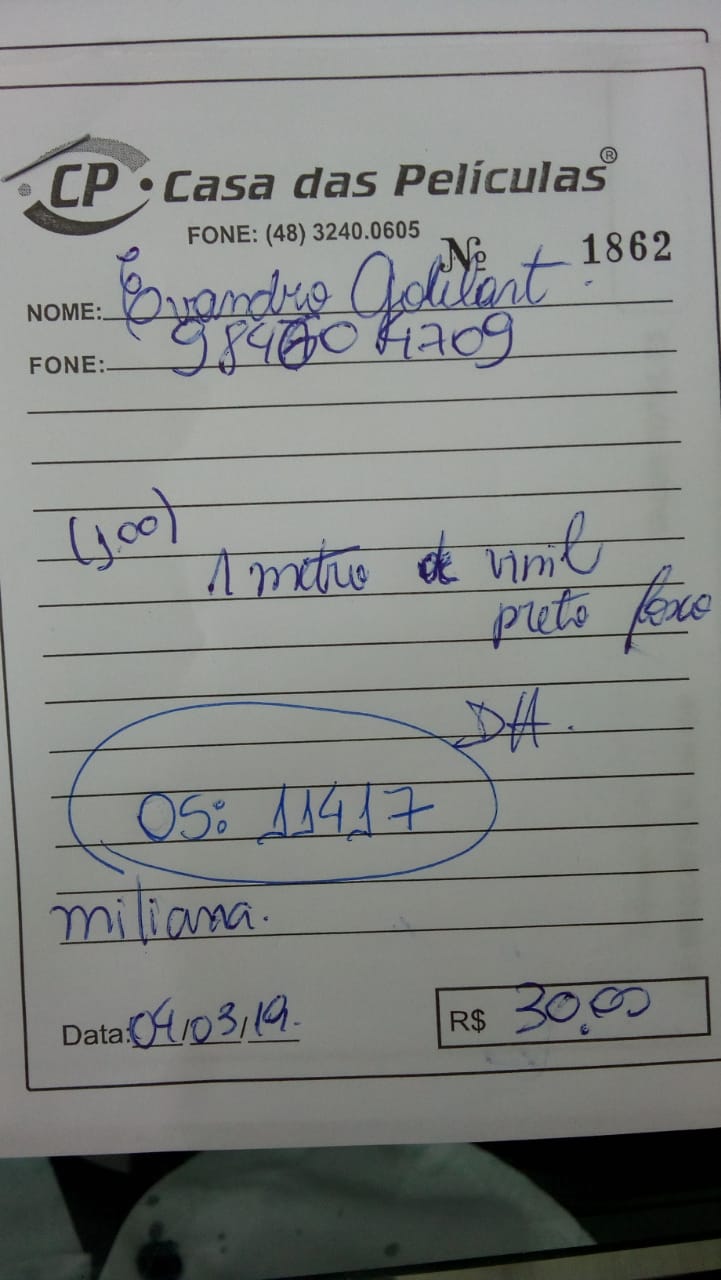 CP • Casa das Películas®
FONE: (48) 3240.0605
Nº 1862
NOME: Evandro
FONE: 4709
(1,00)
1 metro de vinil
preto foxo
DH.
OS: 11417
miliana.
Data: 04/03/19.
R$ 30,00